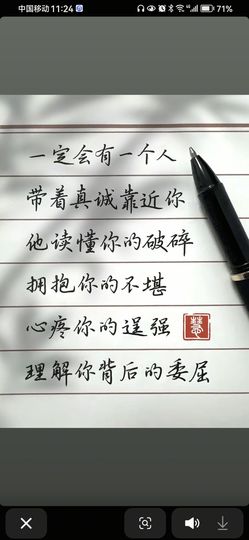 中国移动 11:24 71%
一定会有一个人
带着真诚靠近你
他读懂你的破碎
拥抱你的不堪
心疼你的逞强
理解你背后的委屈